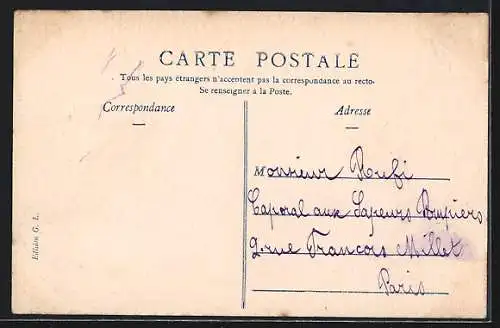 CARTE POSTALE
Tous les pays étrangers n'acceptent pas la correspondance au recto-
Se renseigner à la Poste.
Correspondance
Adresse
Monsieur Rufi
Caporal aux Sapeurs Pompiers
2. rue Francois Millet
Paris
Edition G. L.